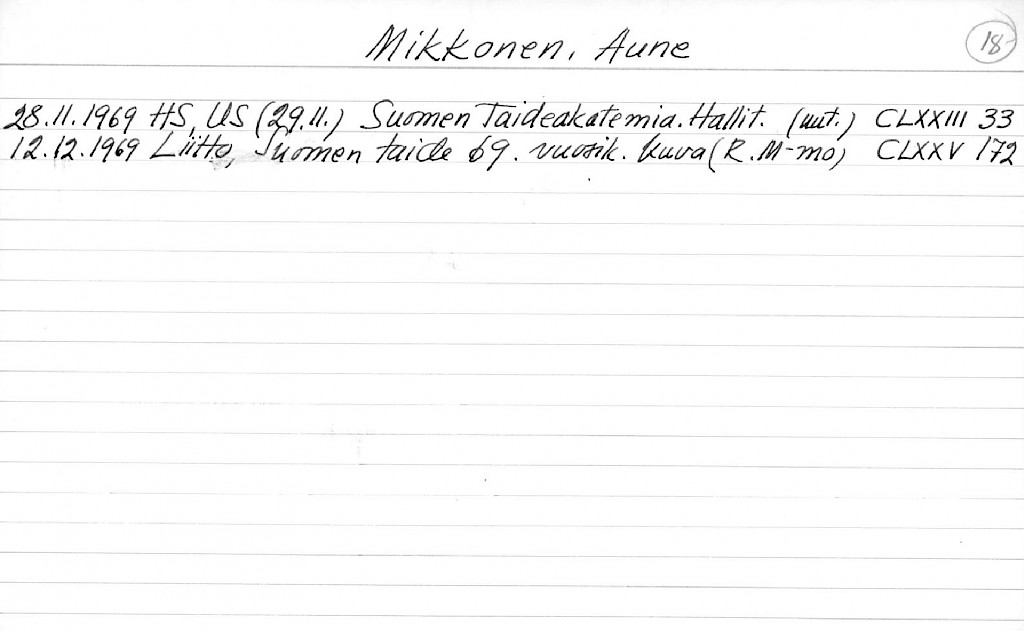 Mikkonen, Aune
18-
28.11.1969 HS, US (29.11.) Suomen Taideakatemia. Hallit. (uut.) CLXXIII 33
12.12.1969 Liitto, Suomen taide 69. vuosik. kuva (R. M-mo) CLXXV 172